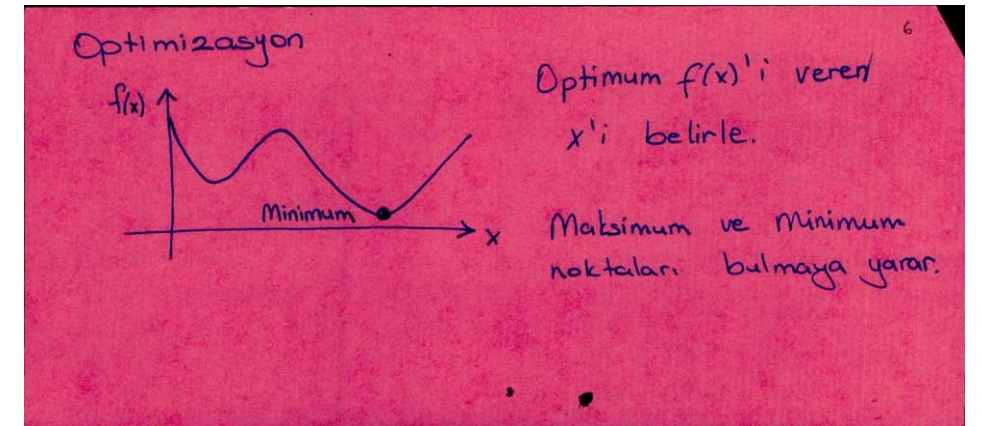 6
Optimizasyon
f(x)
Minimum
x
Optimum f(x)'i veren
x'i belirle.
Maksimum ve Minimum
noktaları bulmaya yarar.